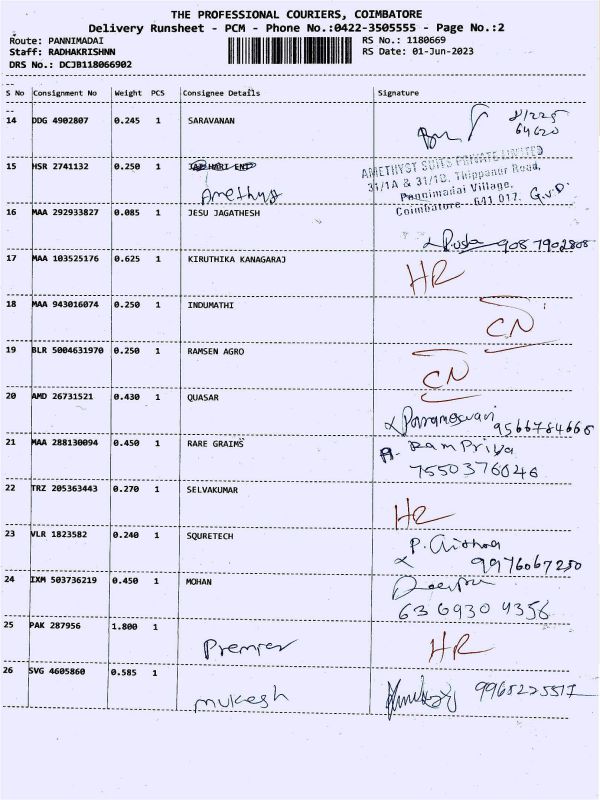 THE PROFESSIONAL COURIERS, COIMBATORE
Delivery Runsheet - PCM - Phone No.:0422-3505555 - Page No.:2
Route: PANNIMADAI RS No.: 1180669
Staff: RADHAKRISHNN RS Date: 01-Jun-2023
DRS No.: DCJB118066902
S No Consignment No Weight PCS Consignee Details Signature
14 DDG 4902807 0.245 1 SARAVANAN
64620
15 HSR 2741132 0.250 1
Amethyst
AMETHYST SUITS PRIVATE LIMITED
31/1A & 31/1B, Thippanur Road,
Pannimadai Village,
Coimbatore - 641 017.
16 MAA 292933827 0.085 1 JESU JAGATHESH
908 7902808
17 MAA 103525176 0.625 1 KIRUTHIKA KANAGARAJ
HR
18 MAA 943016074 0.250 1 INDUMATHI
CN
19 BLR 5004631970 0.250 1 RAMSEN AGRO
CN
20 AMD 26731521 0.430 1 QUASAR
Parameswari 9566784666
21 MAA 288130094 0.450 1 RARE GRAIMS
Ram Priya
7550376046
22 TRZ 205363443 0.270 1 SELVAKUMAR
HR
23 VLR 1823582 0.240 1 SQURETECH
9976067250
24 IXM 503736219 0.450 1 MOHAN
63 6930 4356
25 PAK 287956 1.800 1
Premier HR
26 SVG 4605860 0.585 1
mukesh